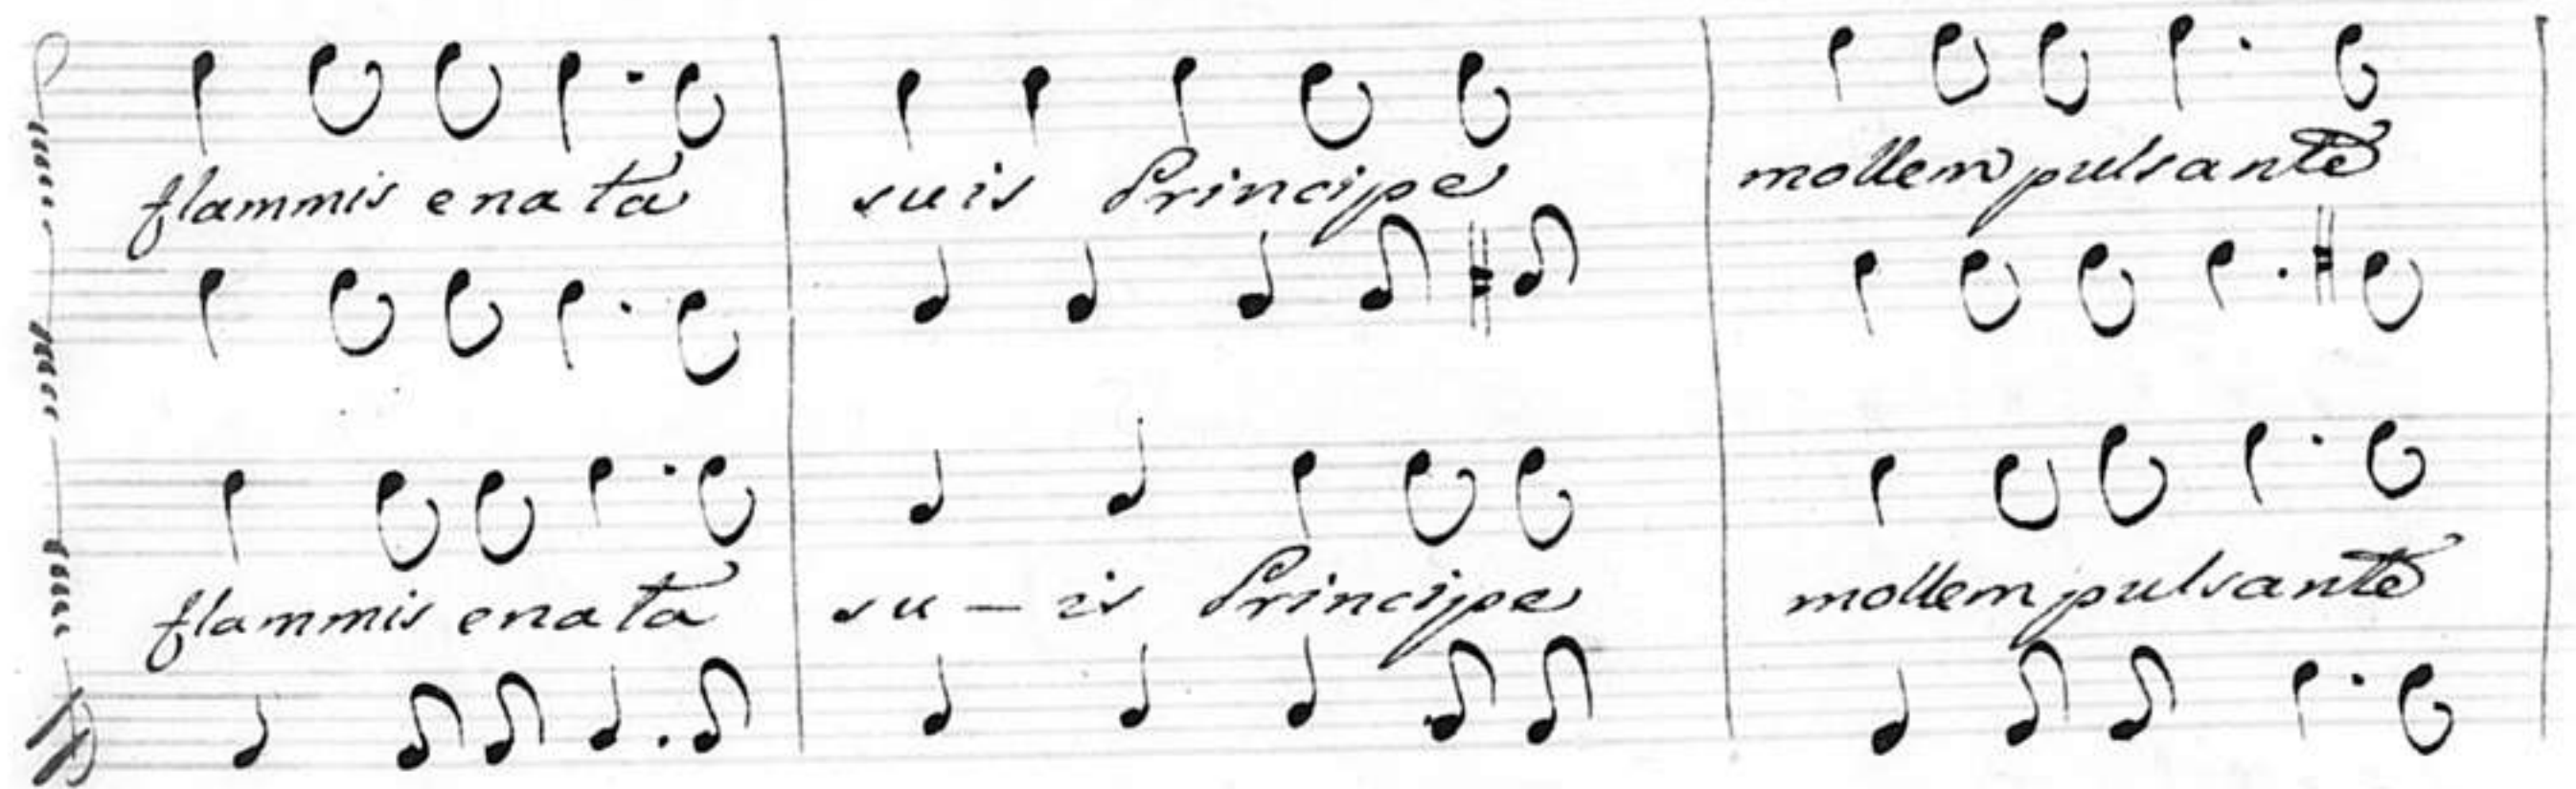 flammis enata suis Principe mollem pulsante
flammis enata su - is Principe mollem pulsante